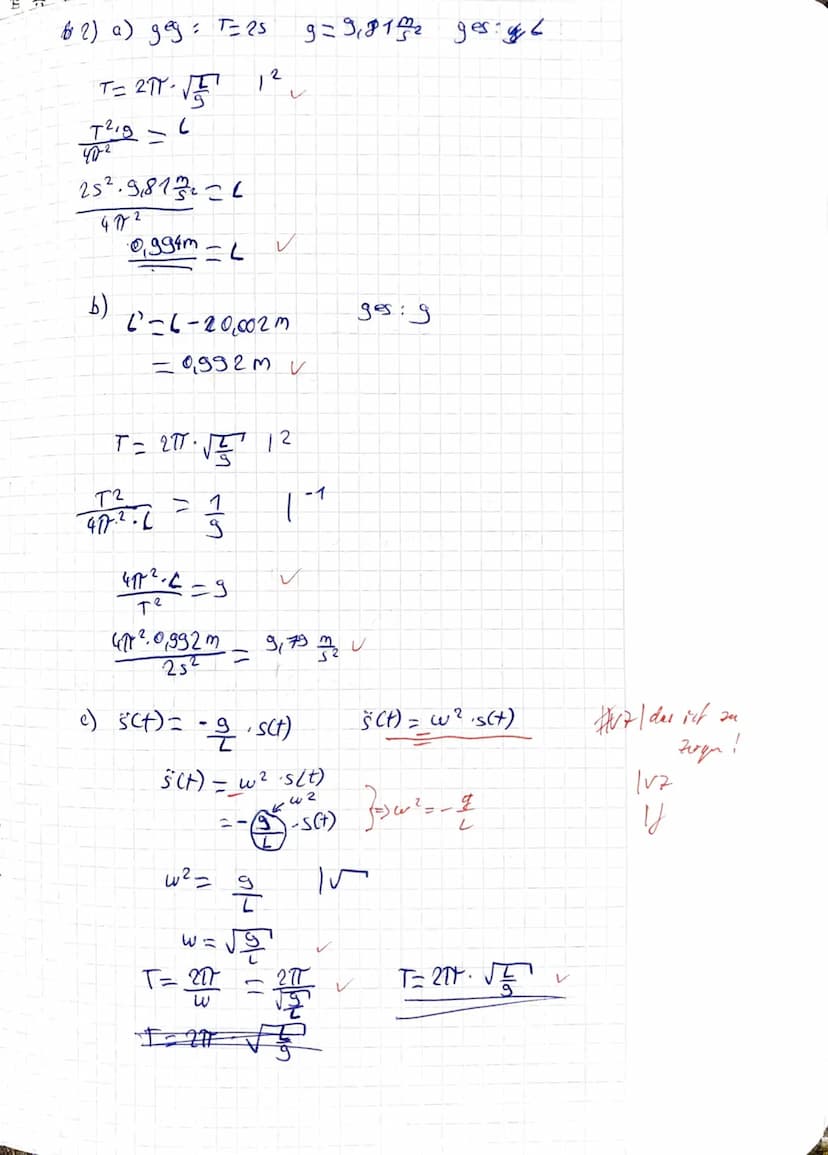 2) a) geg: T=2s g=9,81 m/s² ges: L
T= 2π·√(L/g) |²
(T²·g)/(4π²) = L
(2s²·9,81 m/s²)/(4π²) = L
0,994m = L ✓
b) L'=L-20,002m ges: g
= 0,992m ✓
T= 2π·√(L/g) |²
T²/(4π²·L) = 1/g |⁻¹
(4π²·L)/T² = g ✓
(4π²·0,992m)/(2s²) = 9,79 m/s² ✓
c) s̈(t)= -g/L ·s(t) s̈(t)= w²·s(t) VZ/das ist zu
zeigen!
s̈(t)= w²·s(t) |VZ
w²
= -(g/L)·s(t) }=>w²=-g/L
w²= g/L |√
w= √(g/L) ✓
T= 2π/w = 2π/√(g/L) ✓ T=2π·√(L/g) ✓
T=2π √(L/g)